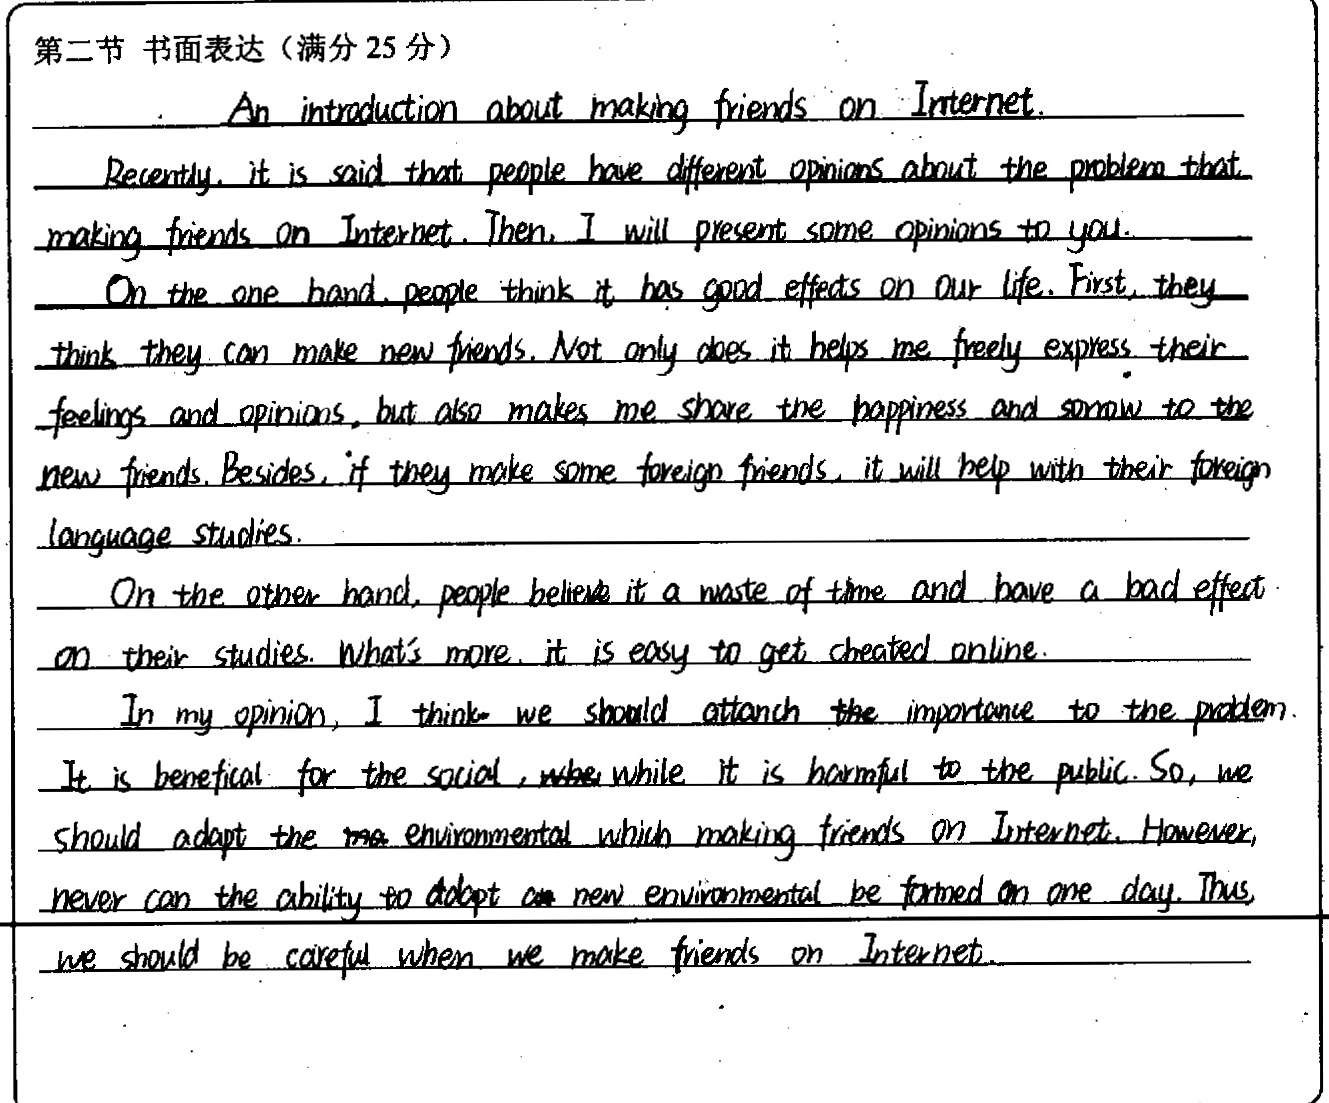 第二节 书面表达（满分 25 分）
An introduction about making friends on Internet.
Recently, it is said that people have different opinions about the problem that
making friends on Internet. Then, I will present some opinions to you.
On the one hand, people think it has good effects on our life. First, they
think they can make new friends. Not only does it helps me freely express their
feelings and opinions, but also makes me share the happiness and sorrow to the
new friends. Besides, if they make some foreign friends, it will help with their foreign
language studies.
On the other hand, people believe it a waste of time and have a bad effect
on their studies. What's more, it is easy to get cheated online.
In my opinion, I think we should attanch the importance to the problem.
It is benefical for the social, while it is harmful to the public. So, we
should adapt the environmental which making friends on Internet. However,
never can the ability to adapt new environmental be formed on one day. Thus,
we should be careful when we make friends on Internet.